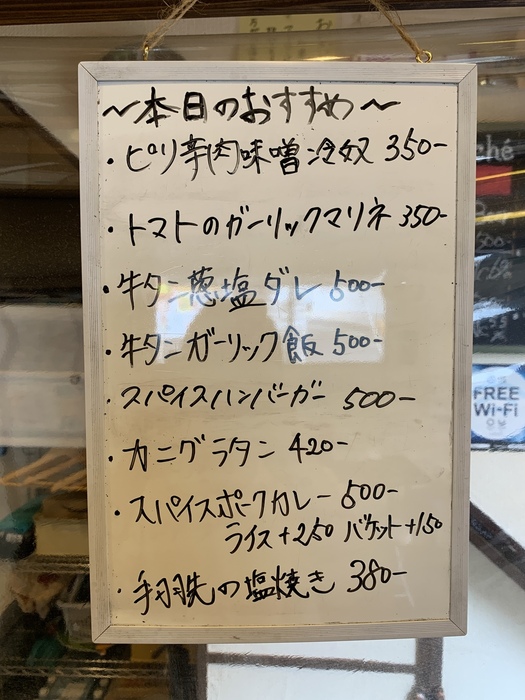 ~本日のおすすめ~
・ピリ辛肉味噌冷奴 350-
・トマトのガーリックマリネ 350-
・牛タン葱塩ダレ 600-
・牛タンガーリック飯 500-
・スパイスハンバーガー 500-
・カニグラタン 420-
・スパイスポークカレー 600-
ライス+250 バケット+150
・手羽先の塩焼き 380-
ché
FREE
Wi-Fi